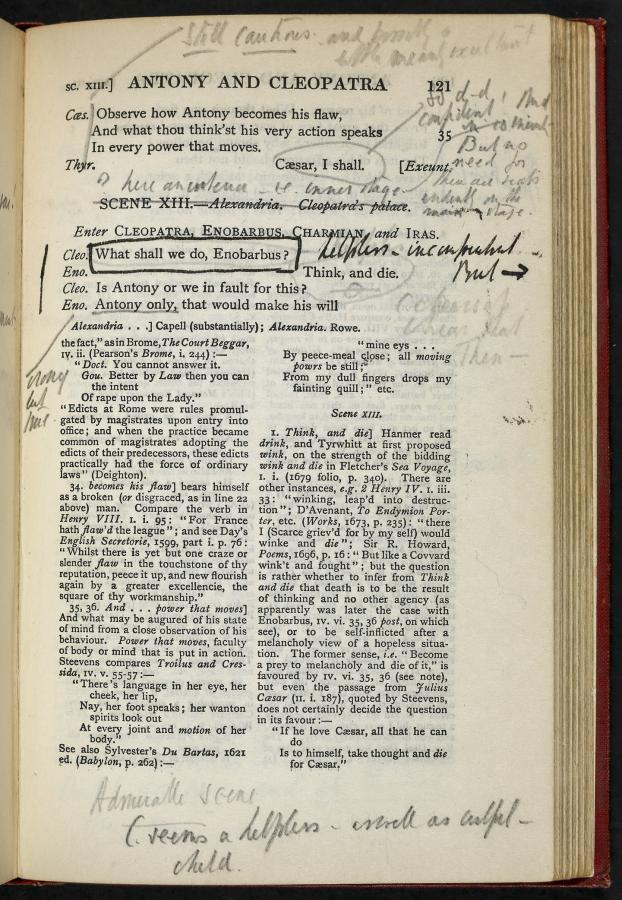 Still cautious and possibly a
little
SC. XIII.] ANTONY AND CLEOPATRRA 121
Cæs. Observe how Antony becomes his flaw,
And what thou think'st his very action speaks 35
In every power that moves.
Thyr. Cæsar, I shall. [Exeunt.
But no
need for
? here an entrance - i.e. inner stage.
SCENE XIII.—Alexandria. Cleopatra's palace.
Enter CLEOPATRA, ENOBARBUS, CHARMIAN, and IRAS.
helpless - incompetent -
Cleo. What shall we do, Enobarbus?
Eno. Think, and die.
But →
Cleo. Is Antony or we in fault for this?
Eno. Antony only, that would make his will
Then —
Alexandria . . .] Capell (substantially); Alexandria. Rowe.
the fact," as in Brome, The Court Beggar,
IV. ii. (Pearson's Brome, i. 244):—
"Doct. You cannot answer it.
Gou. Better by Law then you can
the intent
Of rape upon the Lady."
"Edicts at Rome were rules promul-
gated by magistrates upon entry into
office; and when the practice became
common of magistrates adopting the
edicts of their predecessors, these edicts
practically had the force of ordinary
laws" (Deighton).
34. becomes his flaw] bears himself
as a broken (or disgraced, as in line 22
above) man. Compare the verb in
Henry VIII. I. i. 95: "For France
hath flaw'd the league"; and see Day's
English Secretorie, 1599, part i. p. 76:
"Whilst there is yet but one craze or
slender flaw in the touchstone of thy
reputation, peece it up, and new flourish
again by a greater excellencie, the
square of thy workmanship."
35, 36. And . . . power that moves]
And what may be augured of his state
of mind from a close observation of his
behaviour. Power that moves, faculty
of body or mind that is put in action.
Steevens compares Troilus and Cres-
sida, IV. v. 55-57:—
"There's language in her eye, her
cheek, her lip,
Nay, her foot speaks; her wanton
spirits look out
At every joint and motion of her
body."
See also Sylvester's Du Bartas, 1621
ed. (Babylon, p. 262):—
"mine eyes . . .
By peece-meal close; all moving
powrs be still;
From my dull fingers drops my
fainting quill;" etc.
Scene XIII.
1. Think, and die] Hanmer read
drink, and Tyrwhitt at first proposed
wink, on the strength of the bidding
wink and die in Fletcher's Sea Voyage,
I. i. (1679 folio, p. 340). There are
other instances, e.g. 2 Henry IV. I. iii.
33: "winking, leap'd into destruc-
tion"; D'Avenant, To Endymion Por-
ter, etc. (Works, 1673, p. 235): "there
I (Scarce griev'd for by my self) would
winke and die"; Sir R. Howard,
Poems, 1696, p. 16: "But like a Covvard
wink't and fought"; but the question
is rather whether to infer from Think
and die that death is to be the result
of thinking and no other agency (as
apparently was later the case with
Enobarbus, IV. vi. 35, 36 post, on which
see), or to be self-inflicted after a
melancholy view of a hopeless situa-
tion. The former sense, i.e. "Become
a prey to melancholy and die of it," is
favoured by IV. vi. 35, 36 (see note),
but even the passage from Julius
Cæsar (II. i. 187), quoted by Steevens,
does not certainly decide the question
in its favour:—
"If he love Cæsar, all that he can
do
Is to himself, take thought and die
for Cæsar."
Admirable scene
C. seems a helpless - as well as
child.